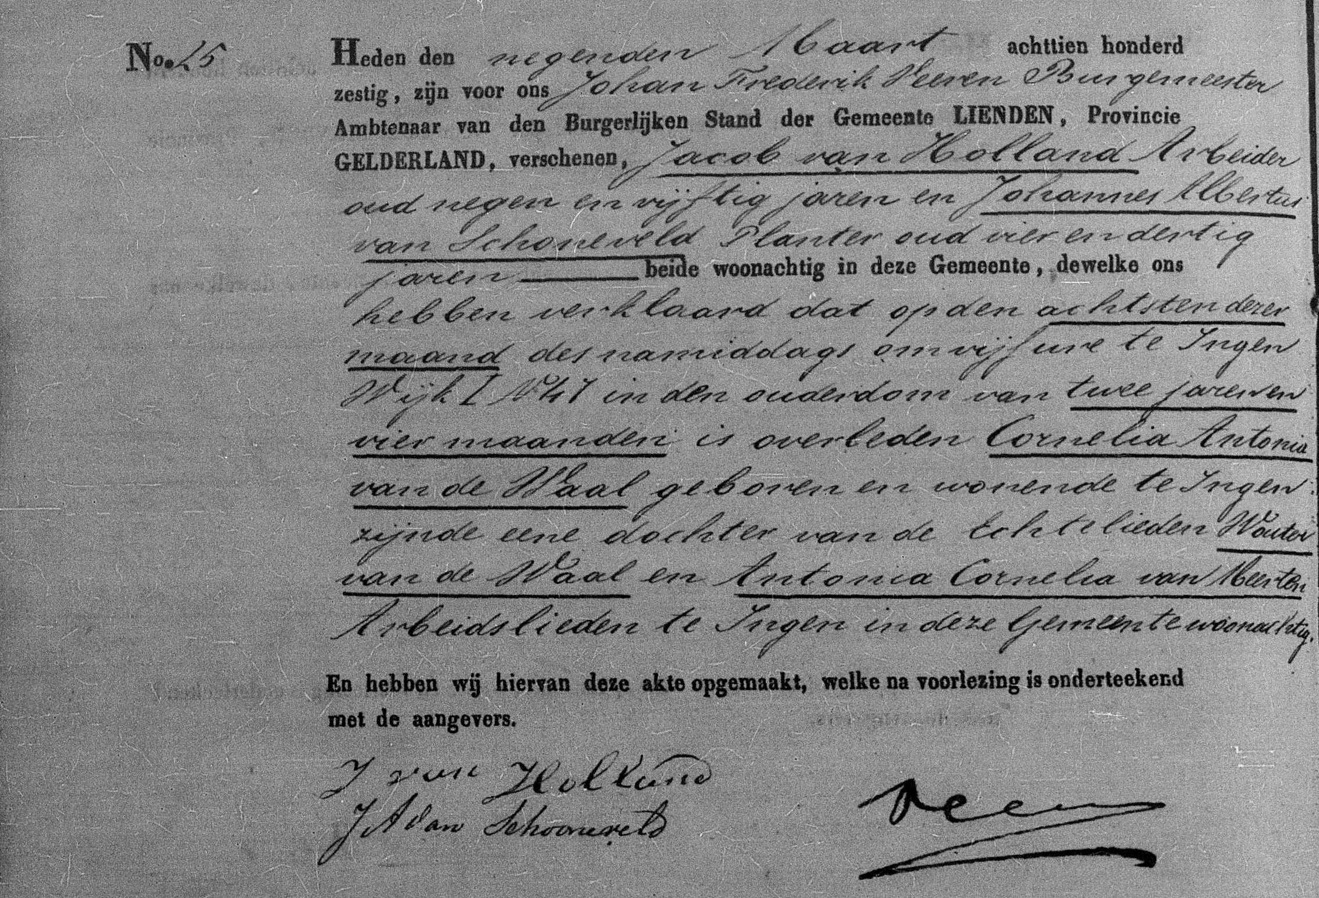 No. 25
Heden den negenden Maart achttien honderd
zestig, zijn voor ons Johan Frederik Veeren Burgemeester
Ambtenaar van den Burgerlijken Stand der Gemeente LIENDEN, Provincie
GELDERLAND, verschenen, Jacob van Holland Arbeider
oud negen en vijftig jaren en Johannes Albertus
van Schoneveld Planter oud vier en dertig
jaren beide woonachtig in deze Gemeente, dewelke ons
hebben verklaard dat op den achtsten dezer
maand des namiddags om vijf ure te Ingen
Wijk I No 47 in den ouderdom van twee jaren en
vier maanden is overleden Cornelia Antonia
van de Waal geboren en wonende te Ingen
zijnde eene dochter van de Echtelieden Wouter
van de Waal en Antonia Cornelia van Meerten
Arbeidslieden te Ingen in deze Gemeente woonachtig.
En hebben wij hiervan deze akte opgemaakt, welke na voorlezing is onderteekend
met de aangevers.
J van Holland
J A van Schooneveld